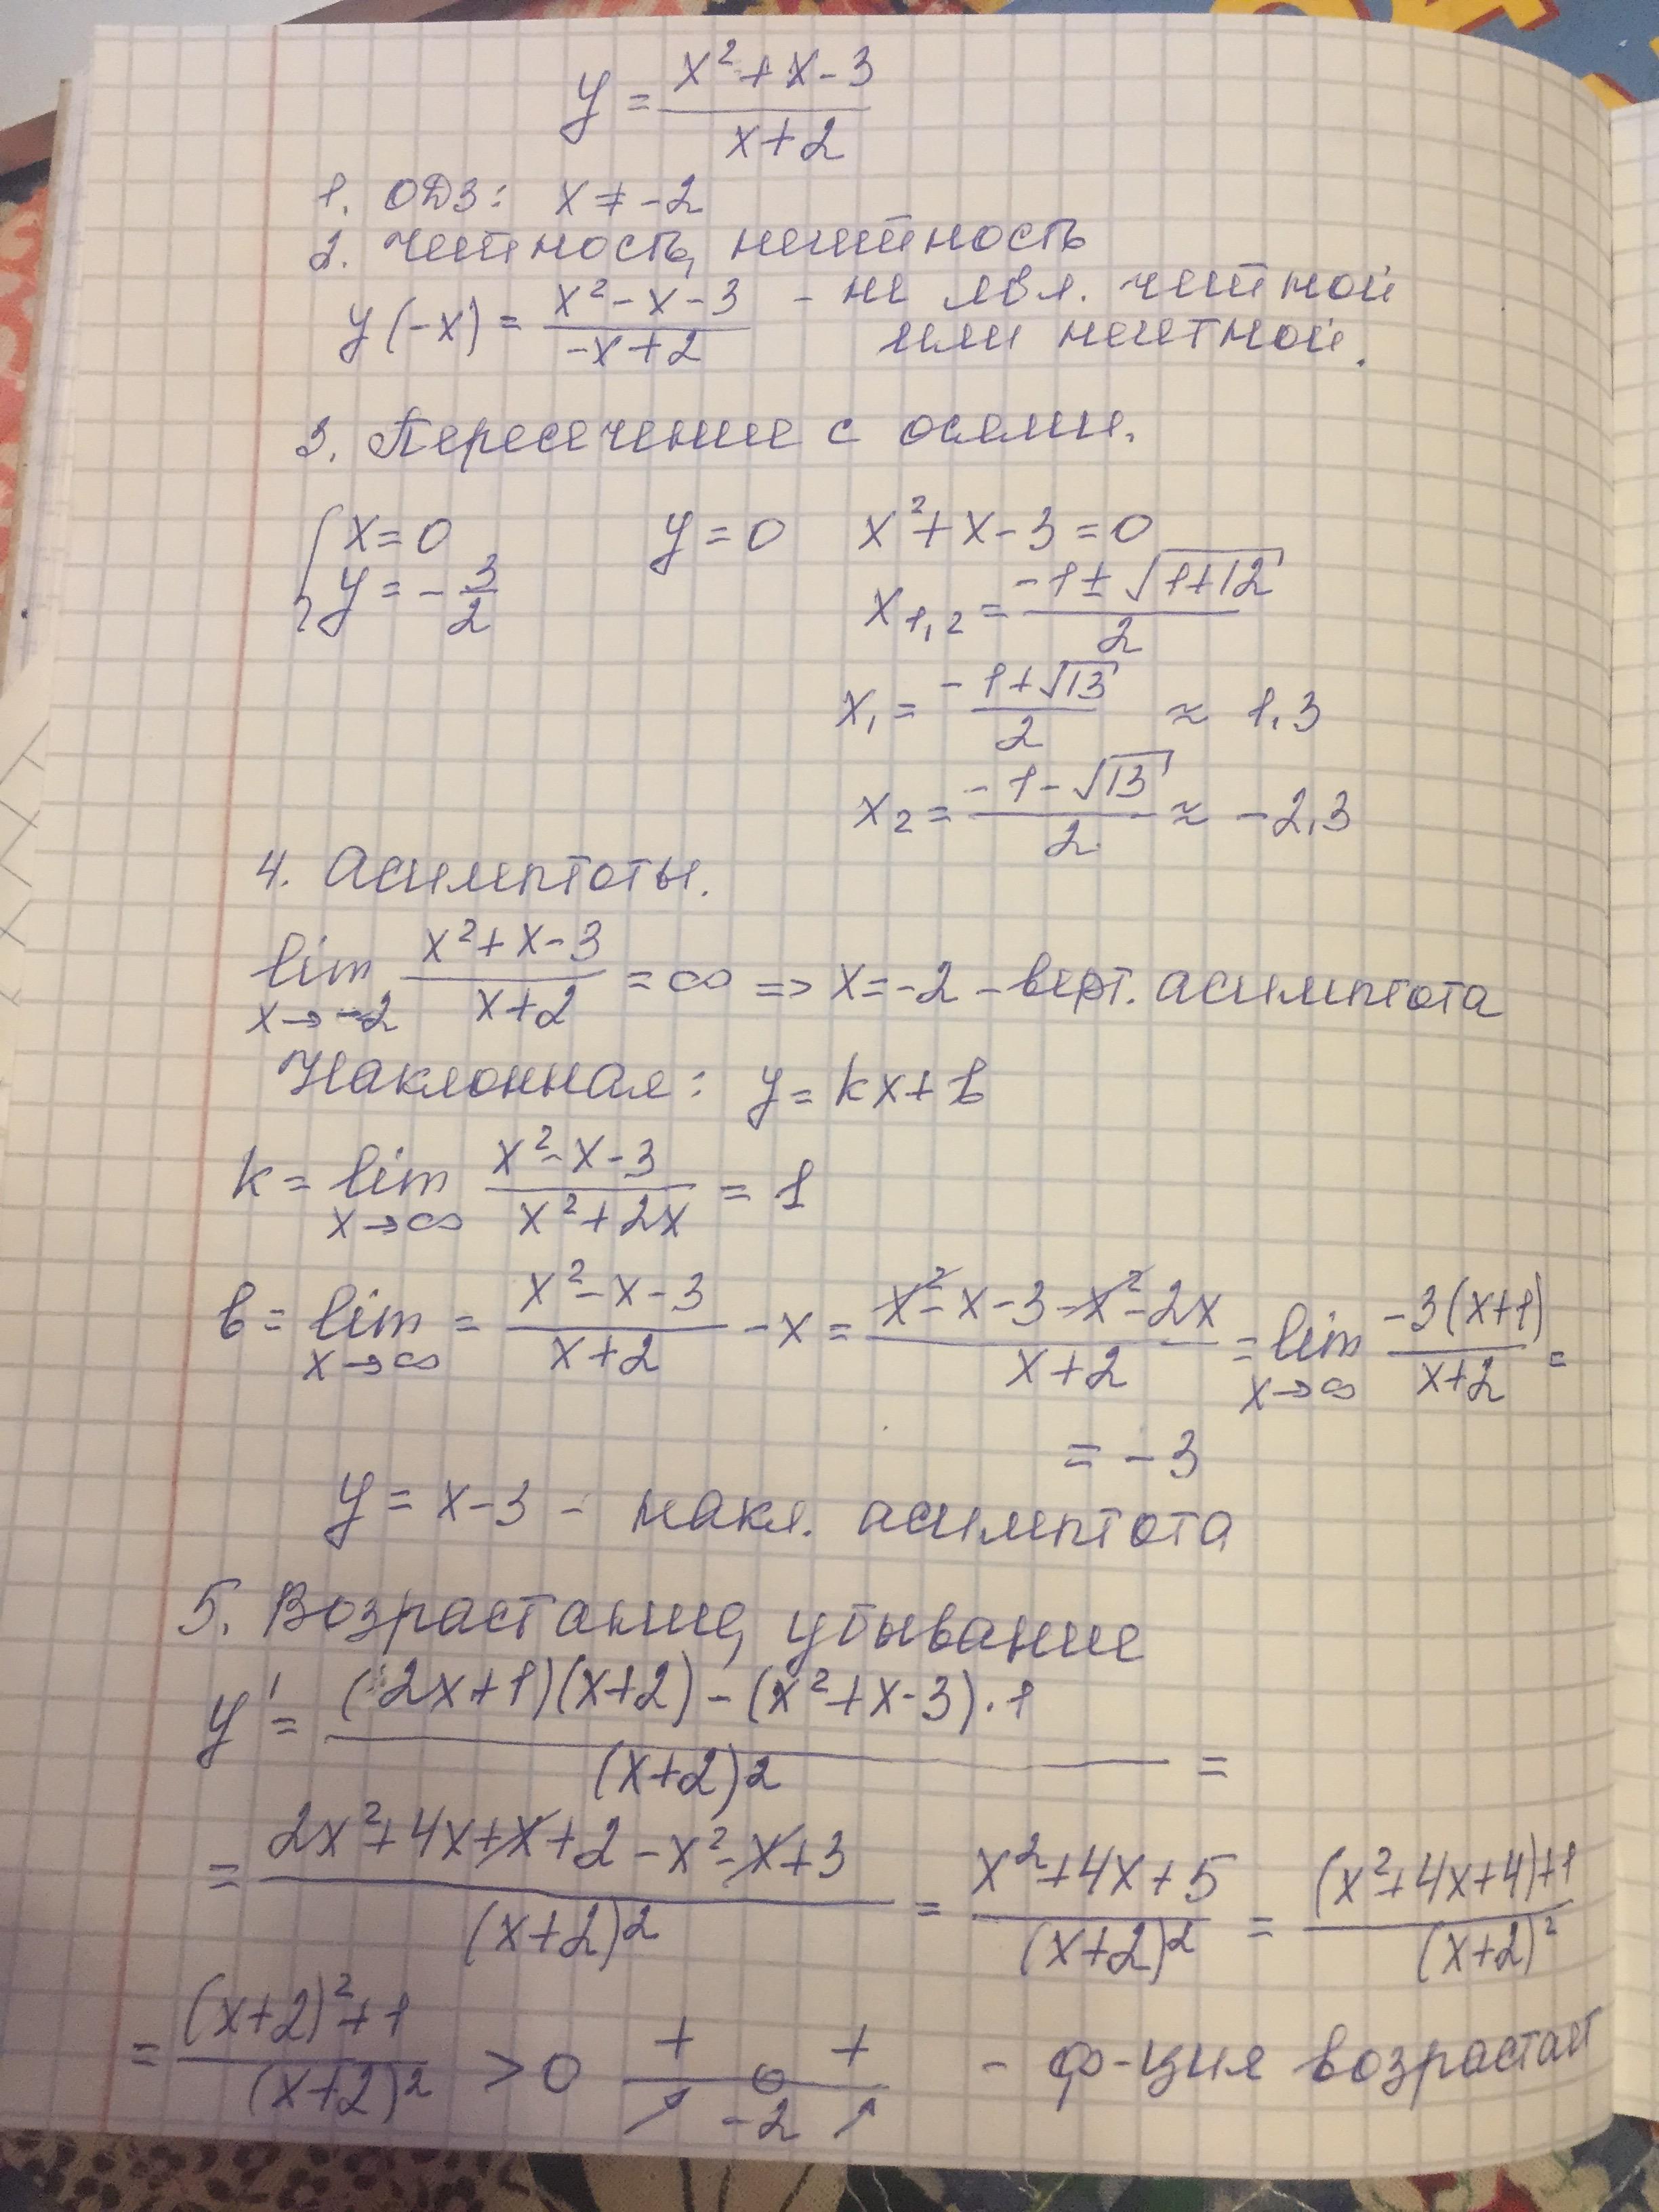 y = (x² + x - 3)/(x + 2)
1. ОДЗ: x ≠ -2
2. Четность, нечетность
y(-x) = (x² - x - 3)/(-x + 2) - не явл. четной
или нечетной.
3. Пересечение с осями.
{ x = 0 y = 0 x² + x - 3 = 0
y = -3/2 x₁,₂ = (-1 ± √(1+12))/2
x₁ = (-1 + √13)/2 ≈ 1,3
x₂ = (-1 - √13)/2 ≈ -2,3
4. Асимптоты.
lim x→-2 (x² + x - 3)/(x + 2) = ∞ => x = -2 - верт. асимптота
Наклонная: y = kx + b
k = lim x→∞ (x² - x - 3)/(x² + 2x) = 1
b = lim x→∞ = (x² - x - 3)/(x + 2) - x = (x² - x - 3 - x² - 2x)/(x + 2) = lim x→∞ -3(x+1)/(x+2) =
= -3
y = x - 3 - накл. асимптота
5. Возрастание, убывание
y' = ((2x+1)(x+2) - (x² + x - 3)·1)/(x+2)² =
= (2x² + 4x + x + 2 - x² - x + 3)/(x+2)² = (x² + 4x + 5)/(x+2)² = ((x² + 4x + 4) + 1)/(x+2)²
= ((x+2)² + 1)/(x+2)² > 0 + + - ф-ция возрастает
-2